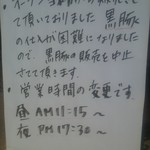 て頂いておりました 黒豚
の仕入が困難になりました
ので、黒豚の販売を中止
させて頂きます。
・営業時間の変更です。
昼 AM11:15 ~
夜 PM 17:30 ~